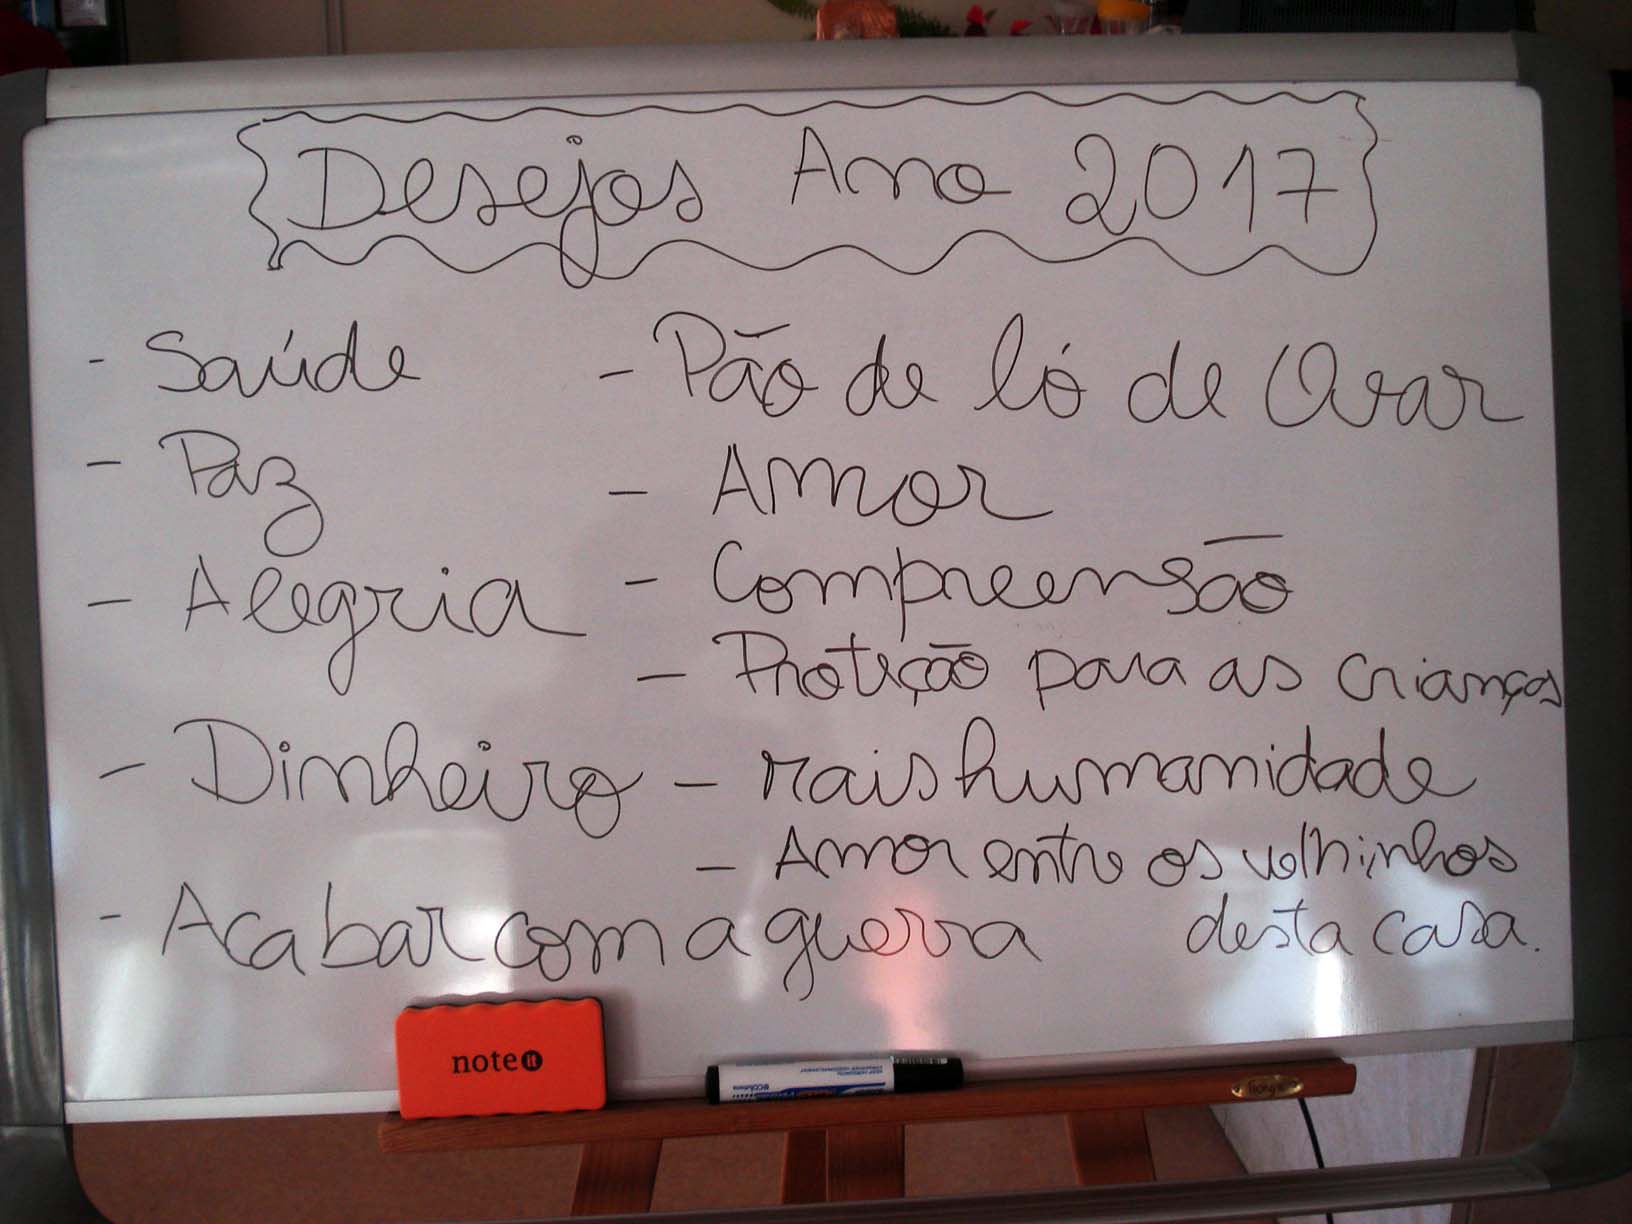 Desejos Ano 2017
- Saúde
- Paz
- Alegria
- Dinheiro
- Acabar com a guerra
- Pão de ló de Ovar
- Amor
- Compreensão
- Proteção para as crianças
- mais humanidade
- Amor entre os velhinhos
desta casa.
note it